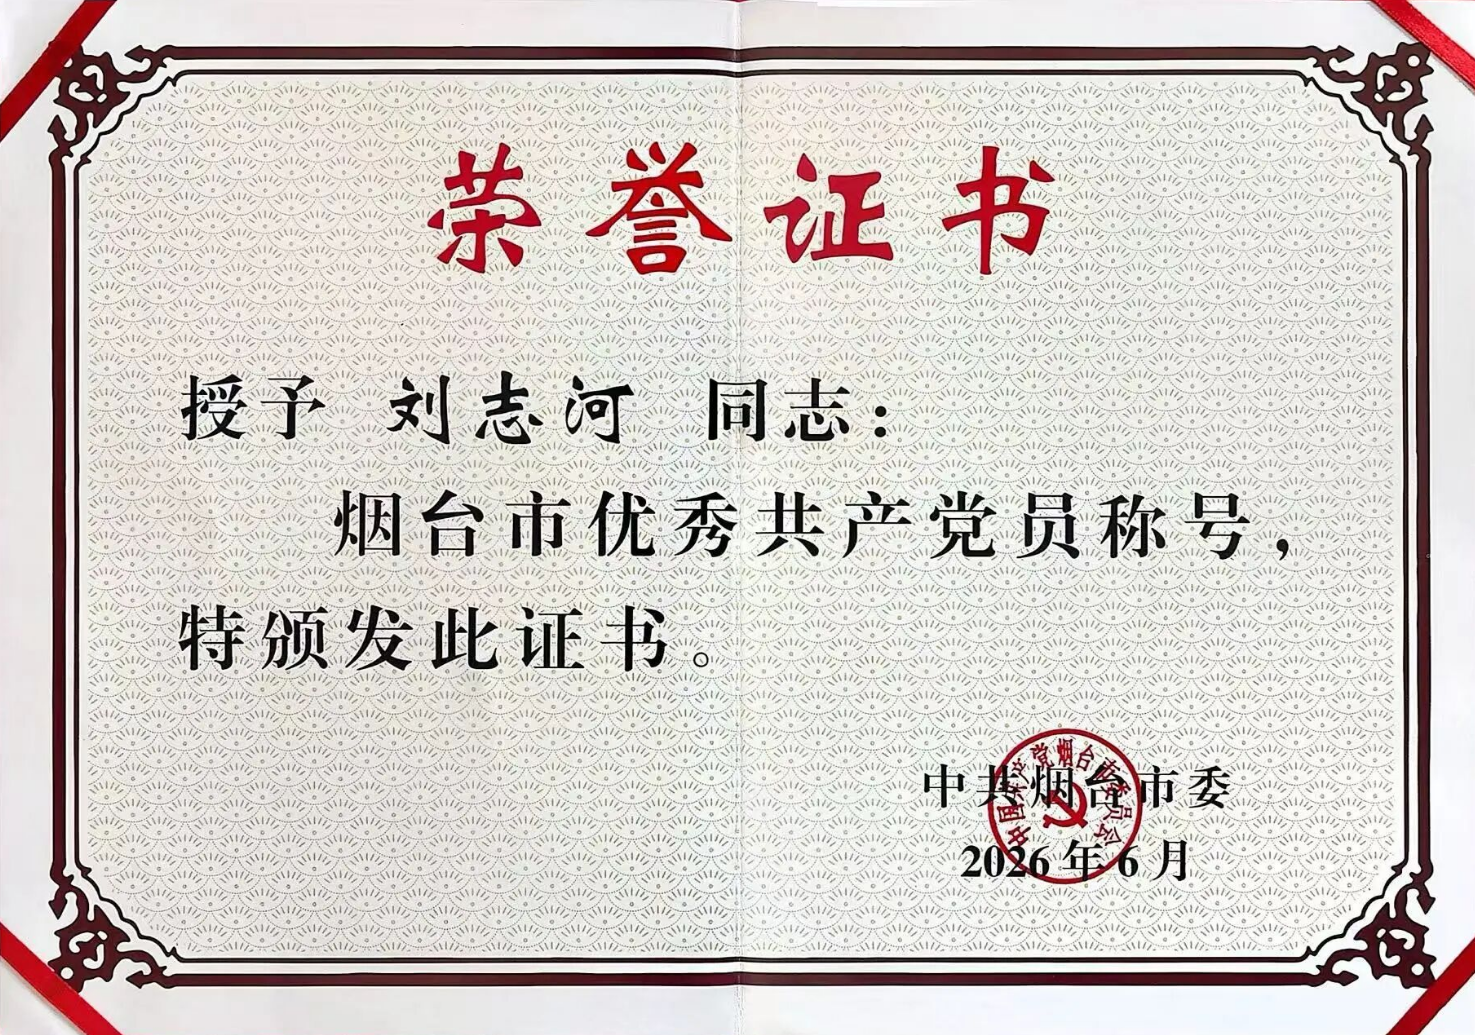 荣誉证书
授予 刘志河 同志：
烟台市优秀共产党员称号，
特颁发此证书。
中共烟台市委
中国共产党烟台市委员会
2026年6月